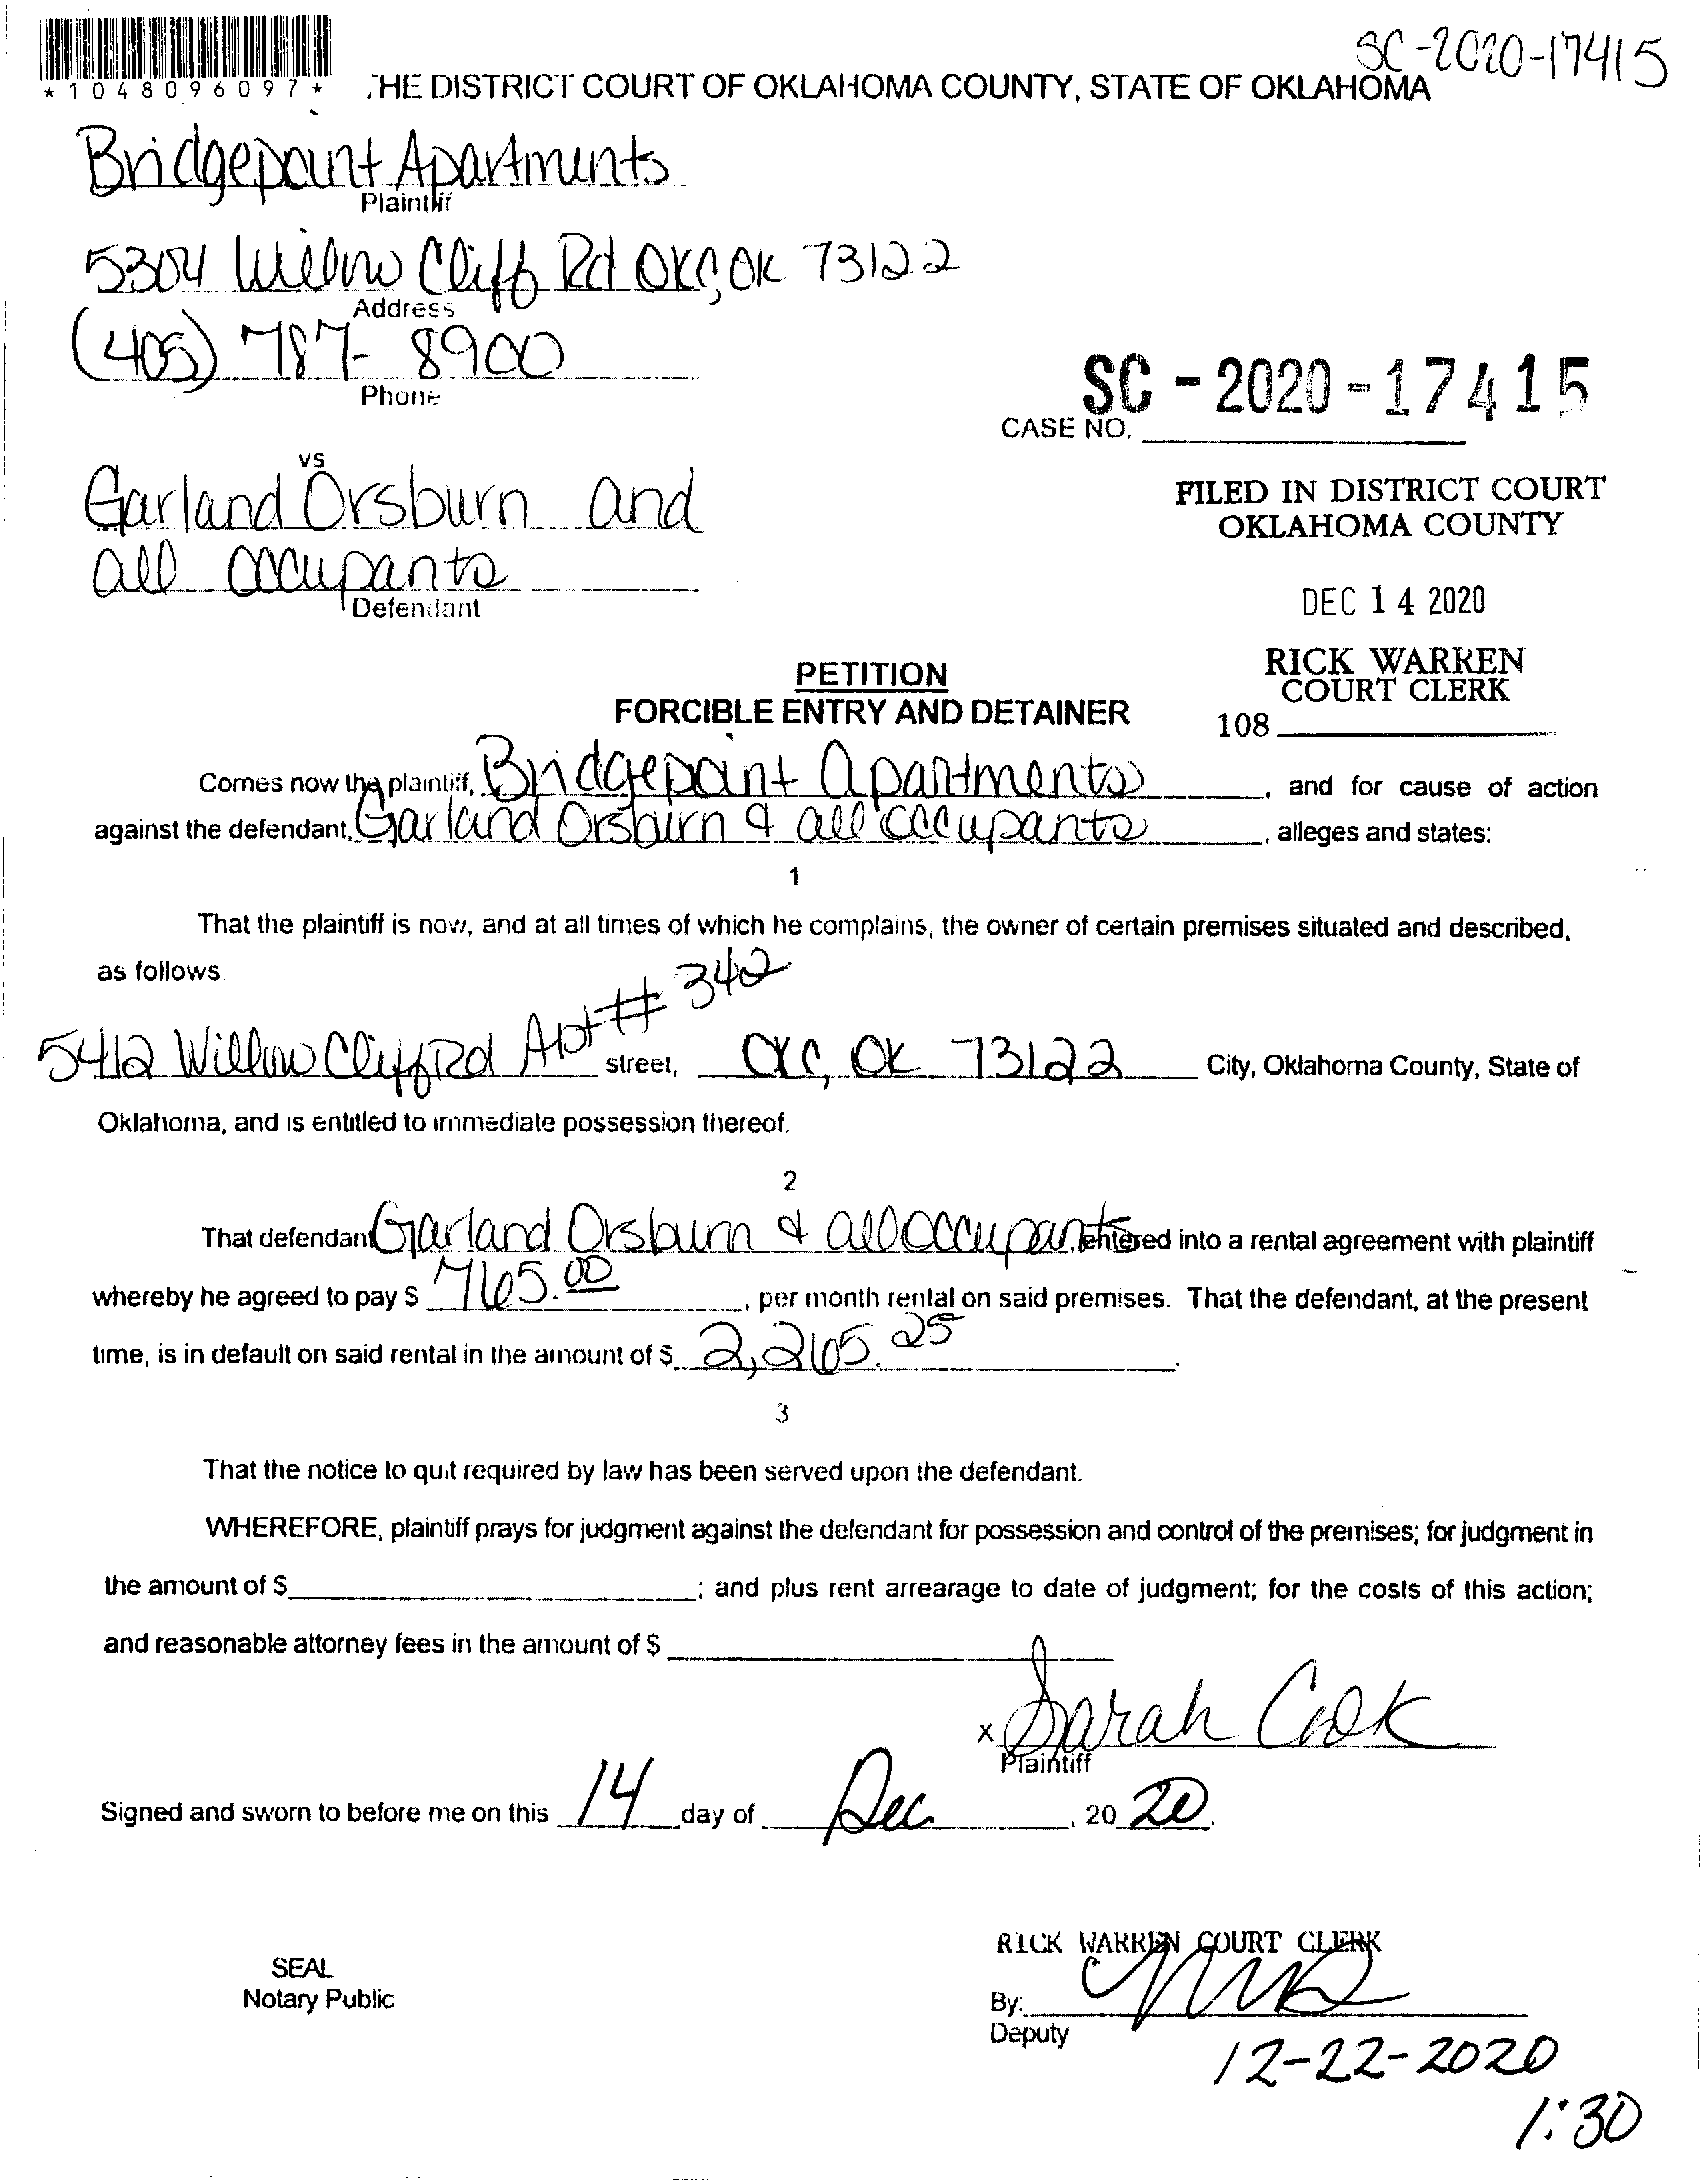 SC-2020-17415
*1048096097*
THE DISTRICT COURT OF OKLAHOMA COUNTY, STATE OF OKLAHOMA
Bridgepoint Apartments
Plaintiff
5304 Willow Cliff Rd OKC, OK 73122
Address
(405) 787-8900
Phone
SC-2020-17415
CASE NO.
vs
Garland Orsburn and
all occupants
Defendant
FILED IN DISTRICT COURT
OKLAHOMA COUNTY
DEC 14 2020
RICK WARREN
COURT CLERK
108
PETITION
FORCIBLE ENTRY AND DETAINER
Comes now the plaintiff, Bridgepoint Apartments, and for cause of action
against the defendant, Garland Orsburn & all occupants, alleges and states:
1
That the plaintiff is now, and at all times of which he complains, the owner of certain premises situated and described,
as follows
5412 Willow Cliff Rd Apt # 342 street, OKC, OK 73122 City, Oklahoma County, State of
Oklahoma, and is entitled to immediate possession thereof.
2
That defendant Garland Orsburn & all occupants, entered into a rental agreement with plaintiff
whereby he agreed to pay $ 765.00, per month rental on said premises. That the defendant, at the present
time, is in default on said rental in the amount of $ 2,265.25.
3
That the notice to quit required by law has been served upon the defendant.
WHEREFORE, plaintiff prays for judgment against the defendant for possession and control of the premises; for judgment in
the amount of $; and plus rent arrearage to date of judgment; for the costs of this action;
and reasonable attorney fees in the amount of $
x Sarah Cook
Plaintiff
Signed and sworn to before me on this 14 day of Dec, 20 20.
SEAL
Notary Public
RICK WARREN COURT CLERK
By:
Deputy
12-22-2020
1:30